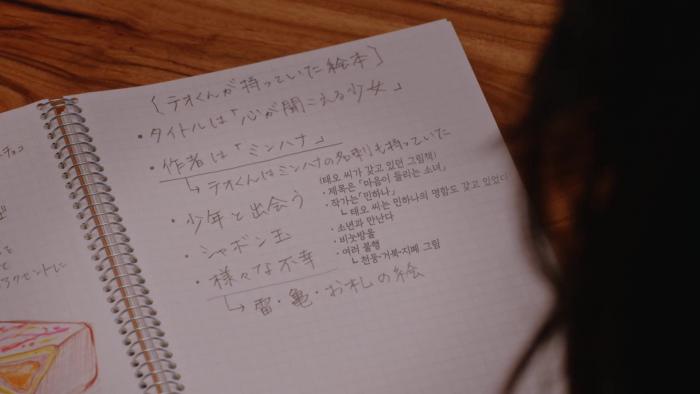 〔テオくんが持っていた絵本〕
・タイトルは「心が聞こえる少女」
・作者は「ミンハナ」
↳ テオくんはミンハナの名刺も持っていた
・少年と出会う
・シャボン玉
・様々な不幸
↳ 雷・亀・お札の絵
(태오 씨가 갖고 있던 그림책)
·제목은 「마음이 들리는 소녀」
·작가는 「민하나」
┗ 태오 씨는 민하나의 명함도 갖고 있었다
·소년과 만난다
·비눗방울
·여러 불행
┗ 천둥·거북·지폐 그림